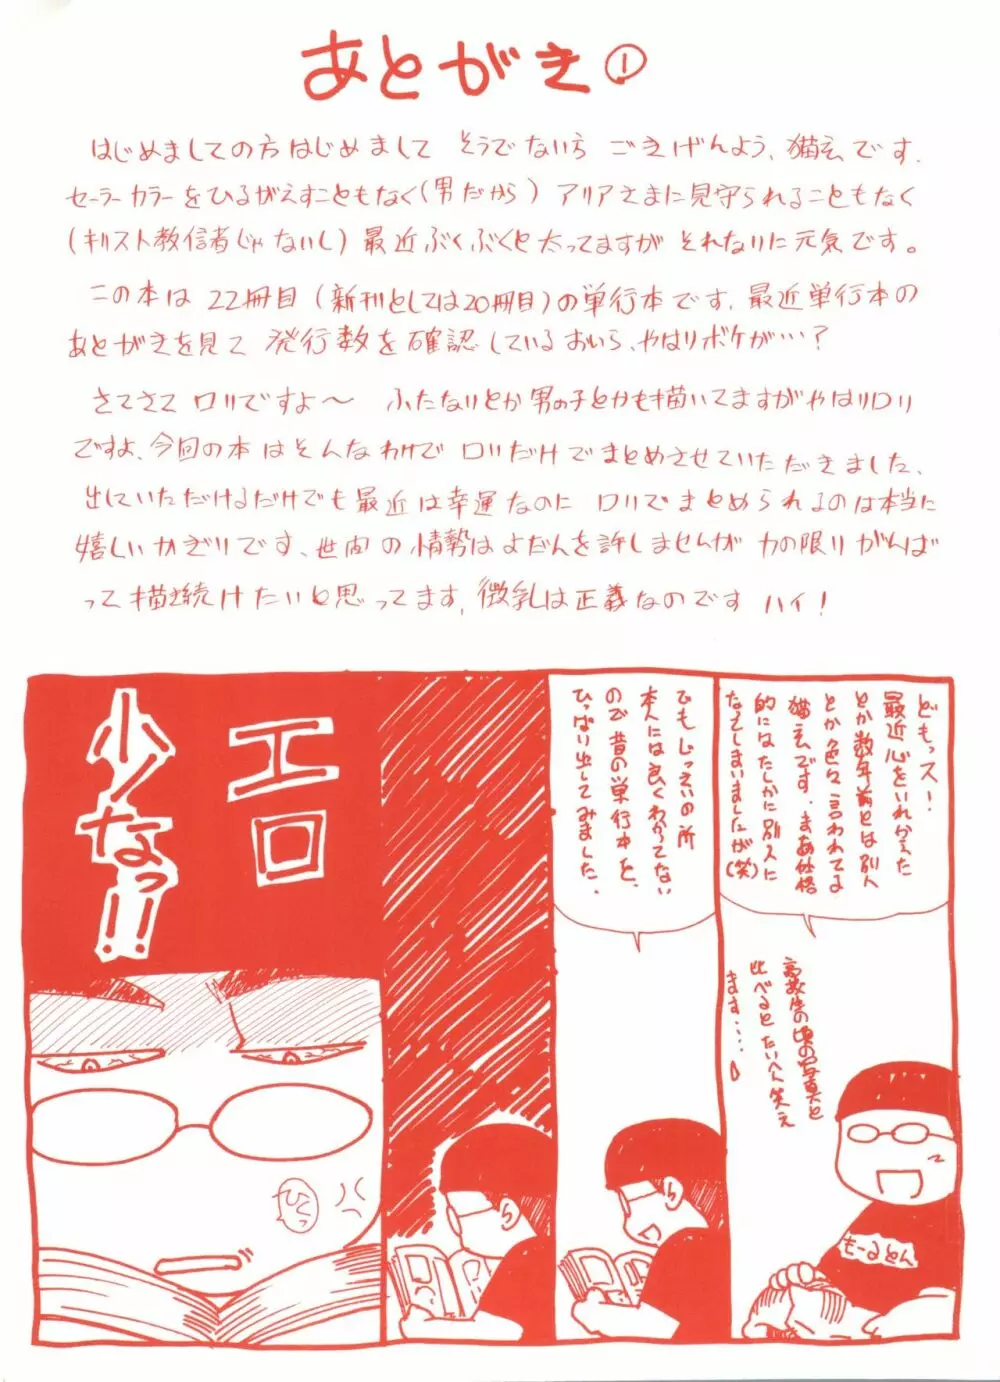 あとがき①
はじめましての方はじめまして そうでないち ごきげんよう、猫玄です.
セーラーカラーをひるがえすこともなく(男だから) アリアさまに見守られることもなく
(キリスト教信者じゃないし) 最近ぶくぶくと太ってますが それなりに元気です。
この本は 22冊目 (新刊としては20冊目)の単行本です. 最近単行本の
あとがきを見て 発行数を確認しているおいら、やはりボケが…?
さてさて ロリですよ〜 ふたなりとか男の子とかも描いてますがやはりロリ
ですよ、今回の本はそんなわけで ロリだけでまとめさせていただきました、
出していただけるだけでも最近は幸運なのに ロリでまとめられるのは本当に
嬉しいかぎりです、世間の情勢はよだんを許しませんが 力の限りがんば
って描き続けたいと思ってます, 微乳は正義なのです ハイ!
どもっス!
最近心をいれかえた
とか数年前とは別人
とか色々言われてる
猫玄です. まあ性格
的にはたしかに別人に
なってしまいましたが(笑)
高校生の頃の写真と
比べるとたいへん笑え
ます‥‥
もーるとん
でもじっさいの所
本人には良くわかってない
ので昔の単行本を、
ひっぱり出してみました.
エロ
少ノなっ!!
ひくっ